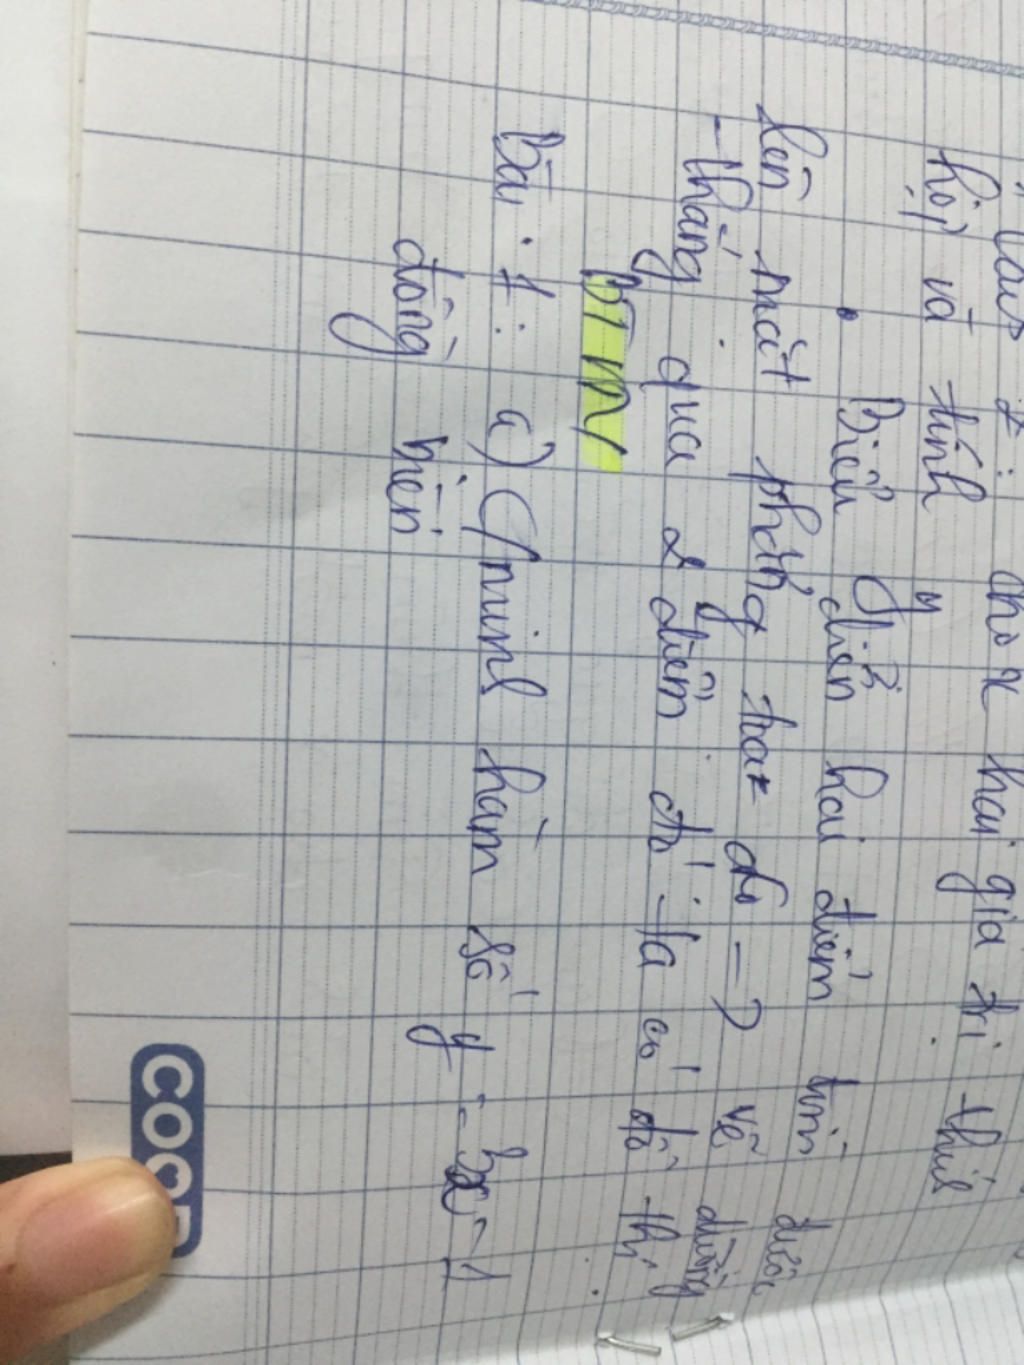 Bước 2 : cho x hai giá trị thích
hợp và tính y
• Biểu diễn hai điểm tìm được
lên mặt phẳng toạ độ → vẽ đường
thẳng qua 2 điểm đó ta có đồ thị.
BTM
Bài 1 : a) C/minh hàm số y = 3x - 1
đồng biến
COOP